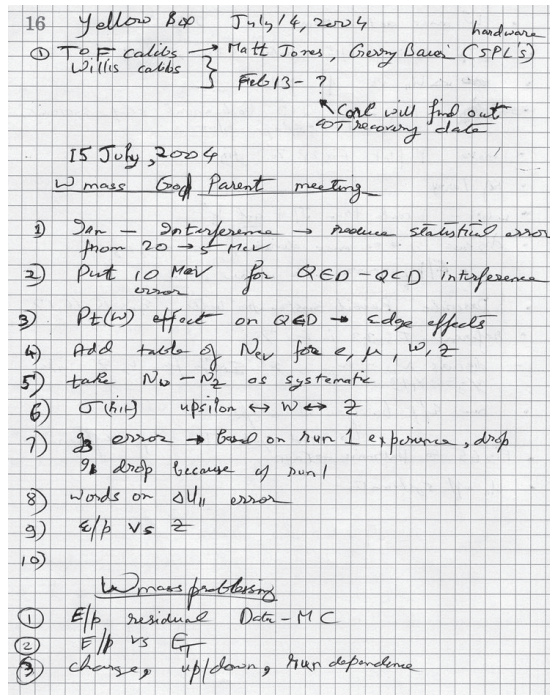 16 Yellow Box July 14, 2004
hardware
① TOF calibs → Matt Jones, Gerry Bauer (SPL's)
Willis calibs } Feb 13 - ?
Carl will find out
COT recovery date
15 July, 2004
W mass God Parent meeting
1) Ian — Interference → reduce statistical error
from 20 → 5 MeV
2) Put 10 MeV for QED - QCD interference
error
3) Pt(W) effect on QED → edge effects
4) Add table of Nev for e, μ, W, Z
5) take Nw - Nz as systematic
6) σ(hit) upsilon ↔ W ↔ Z
7) error → based on run 1 experience, drop
drop because of run 1
8) words on ΔU11 error
9) E/p vs Z
10)
W mass problessing
① E/p residual Data - MC
② E/p vs ET
③ charge, up/down, run dependence